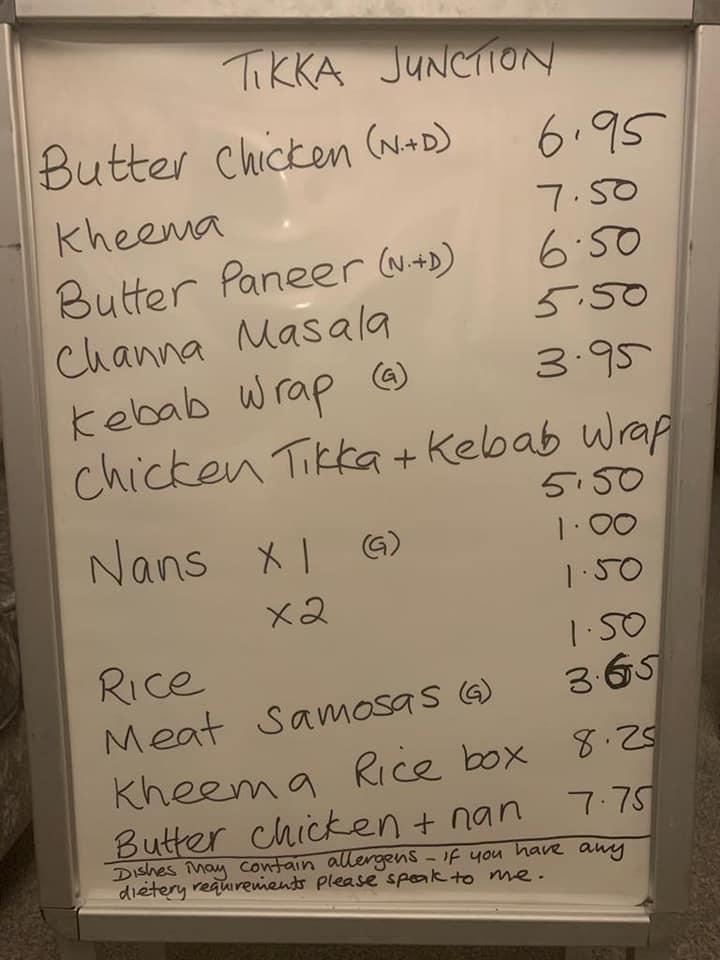 TIKKA JUNCTION
Butter Chicken (N.+D) 6.95
Kheema 7.50
Butter Paneer (N.+D) 6.50
Channa Masala 5.50
Kebab Wrap (G) 3.95
Chicken Tikka + Kebab Wrap
5.50
Nans x 1 (G) 1.00
x2 1.50
Rice 1.50
Meat Samosas (G) 3.65
Kheema Rice box 8.25
Butter chicken + nan 7.75
Dishes may contain allergens - if you have any
dietery requirements please speak to me.